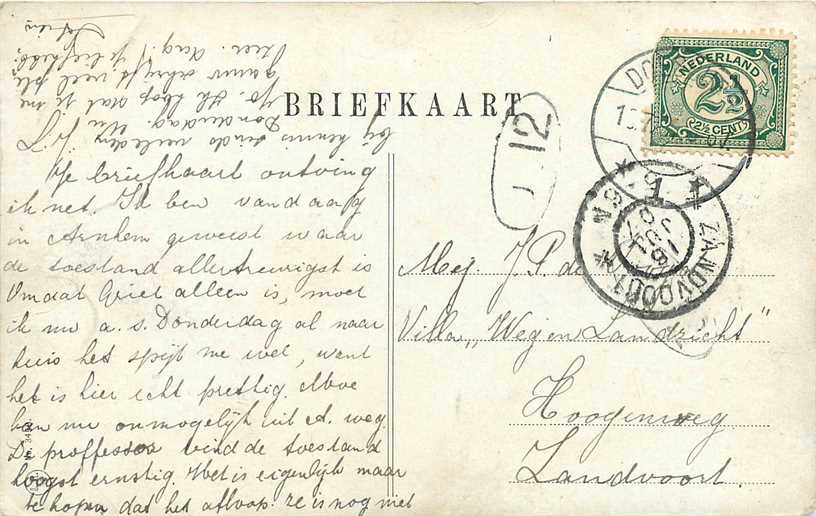 BRIEFKAART
NEDERLAND
2½
2½ CENT
12
ZANDVOORT
16 JUL 07
8-9 N
1
L. J.
Uw briefkaart ontving
ik net. Ik ben vandaag
in Arnhem geweest waar
de toestand allertreurigst is
Omdat Griet alleen is, moet
ik nu a. s. Donderdag al naar
huis het spijt me wel, want
het is hier echt prettig. Moe
kan nu onmogelijk uit A. weg.
De proffessor vindt de toestand
hoogst ernstig. Het is eigenlijk maar
te hopen dat het afloop. ze is nog niet
bij kennis sinds verleden
Donderdag.
Ik hoop dat je me
gauw schrijft veel
Dag!
Mej. J. P. de
Villa „Weg en Landzicht"
Hoogeweg
Zandvoort.